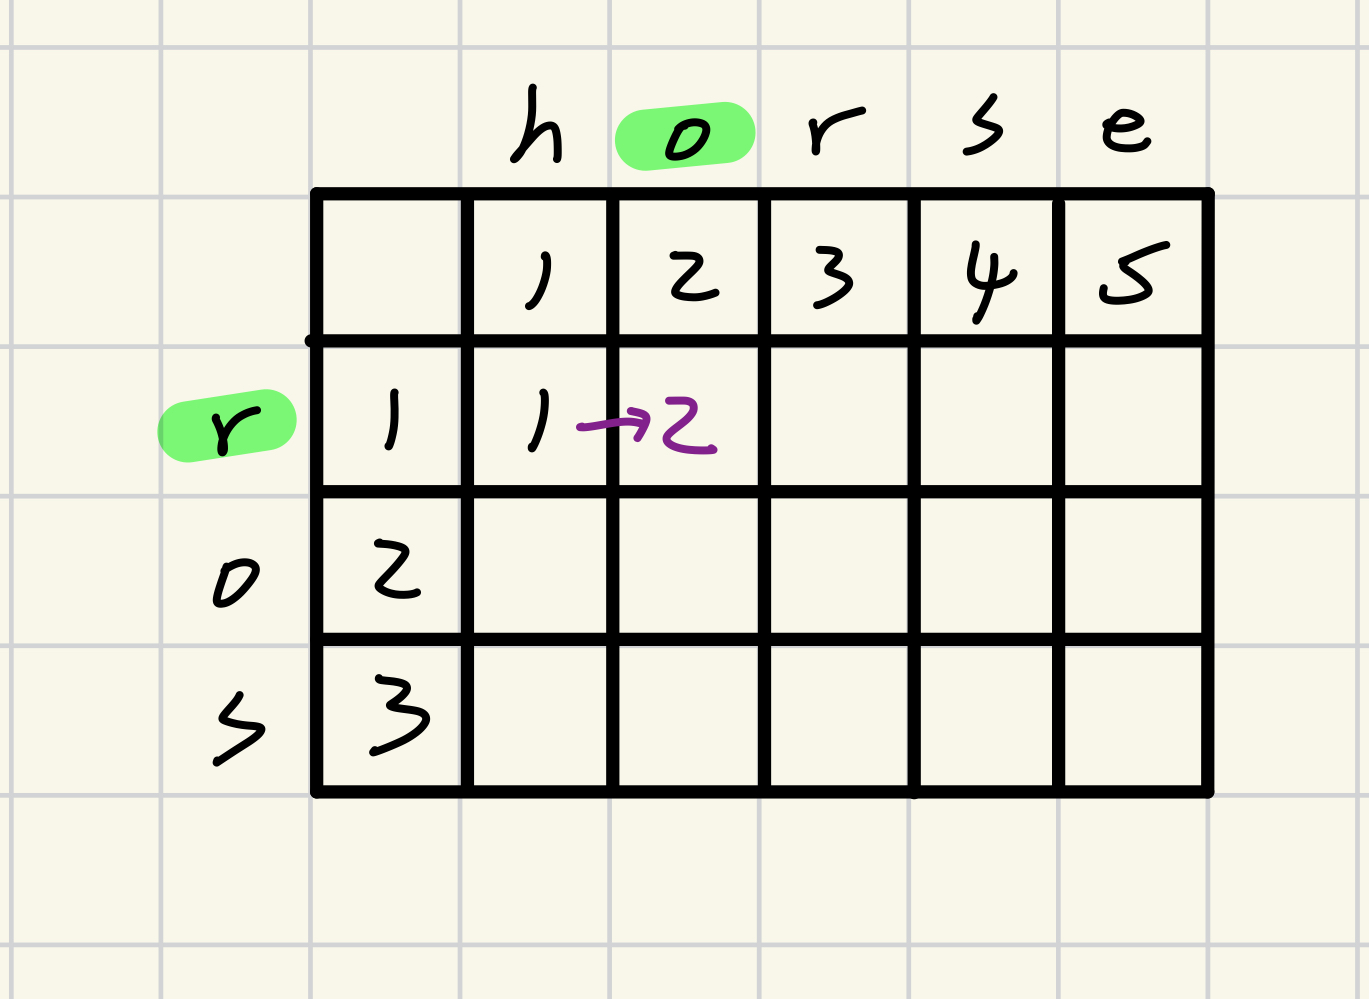 h o r s e
1 2 3 4 5
r 1 1 → 2
o 2
s 3